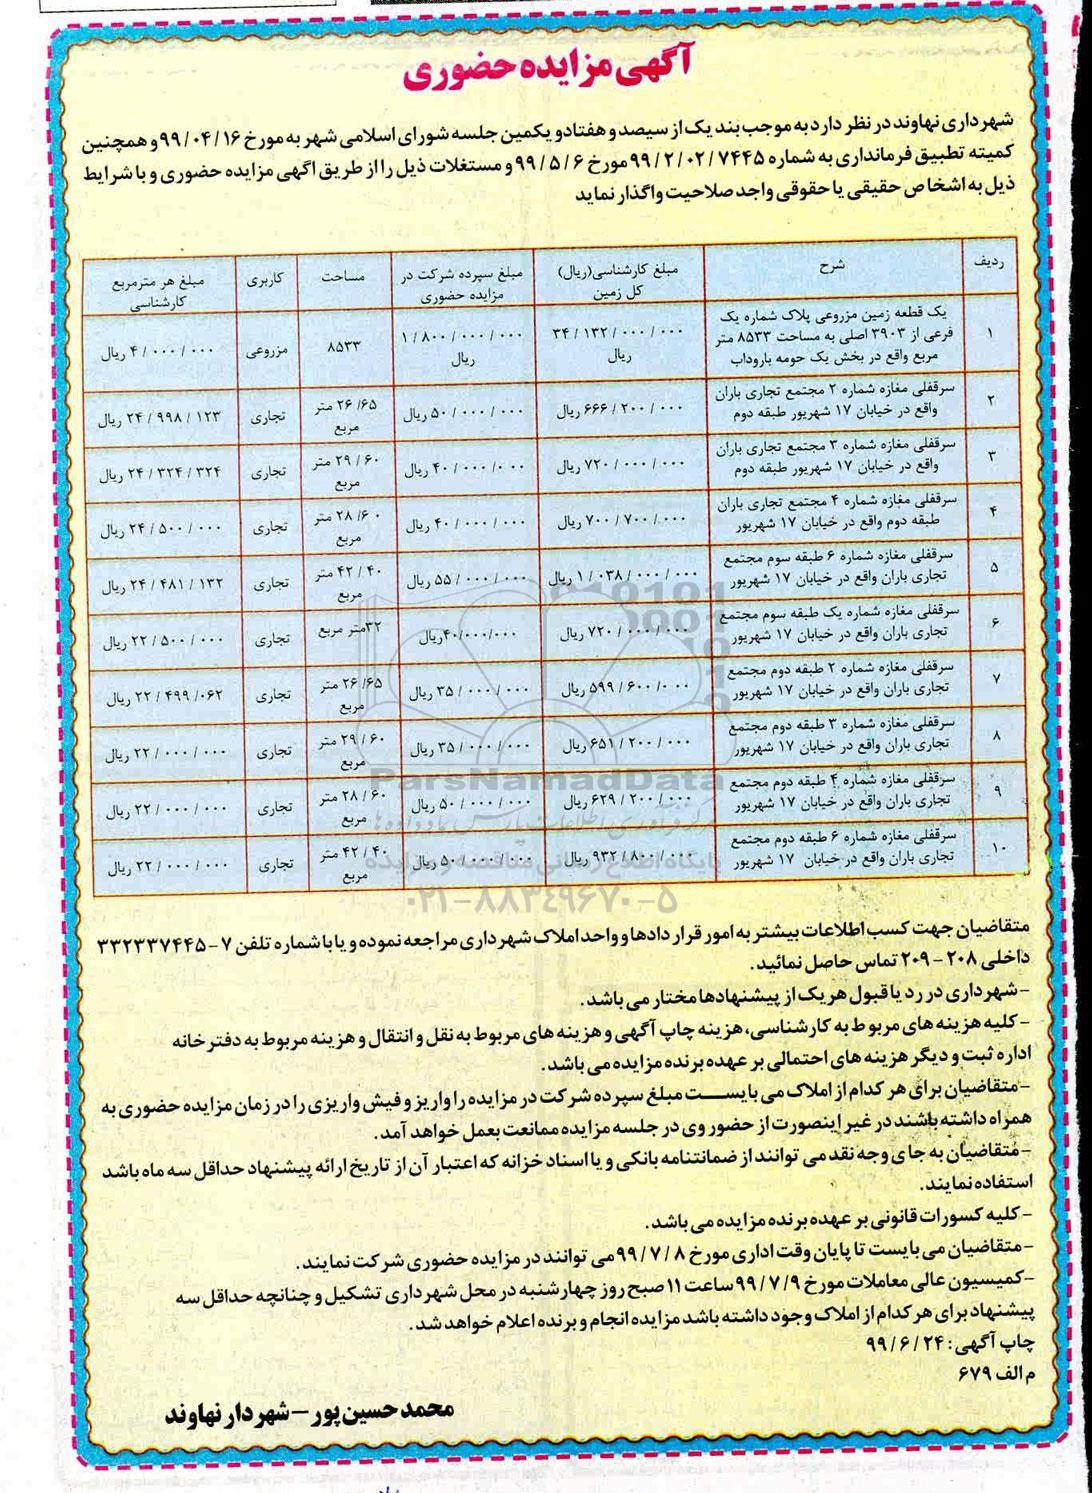 آگهی مزایده حضوری
شهرداری نهاوند در نظر دارد به موجب بند یک از سیصد و هفتاد و یکمین جلسه شورای اسلامی شهر به مورخ ۹۹/۰۴/۱۶ و همچنین
کمیته تطبیق فرمانداری به شماره ۹۹/۲/۰۲/۷۴۴۵ مورخ ۹۹/۵/۶ و مستغلات ذیل را از طریق آگهی مزایده حضوری و با شرایط
ذیل به اشخاص حقیقی یا حقوقی واجد صلاحیت واگذار نماید
ردیف | شرح | مبلغ کارشناسی(ریال) کل زمین | مبلغ سپرده شرکت در مزایده حضوری | مساحت | کاربری | مبلغ هر مترمربع کارشناسی
۱ | یک قطعه زمین مزروعی پلاک شماره یک فرعی از ۳۹۰۳ اصلی به مساحت ۸۵۳۳ متر مربع واقع در بخش یک حومه باروداب | ۳۴/۱۳۲/۰۰۰/۰۰۰ ریال | ۱/۸۰۰/۰۰۰/۰۰۰ ریال | ۸۵۳۳ | مزروعی | ۴/۰۰۰/۰۰۰ ریال
۲ | سرقفلی مغازه شماره ۲ مجتمع تجاری باران واقع در خیابان ۱۷ شهریور طبقه دوم | ۶۶۶/۲۰۰/۰۰۰ ریال | ۵۰/۰۰۰/۰۰۰ ریال | ۲۶/۶۵ متر مربع | تجاری | ۲۴/۹۹۸/۱۲۳ ریال
۳ | سرقفلی مغازه شماره ۳ مجتمع تجاری باران واقع در خیابان ۱۷ شهریور طبقه دوم | ۷۲۰/۰۰۰/۰۰۰ ریال | ۴۰/۰۰۰/۰۰۰ ریال | ۲۹/۶۰ متر مربع | تجاری | ۲۴/۳۲۴/۳۲۴ ریال
۴ | سرقفلی مغازه شماره ۴ مجتمع تجاری باران طبقه دوم واقع در خیابان ۱۷ شهریور | ۷۰۰/۷۰۰/۰۰۰ ریال | ۴۰/۰۰۰/۰۰۰ ریال | ۲۸/۶۰ متر مربع | تجاری | ۲۴/۵۰۰/۰۰۰ ریال
۵ | سرقفلی مغازه شماره ۶ طبقه سوم مجتمع تجاری باران واقع در خیابان ۱۷ شهریور | ۱/۰۳۸/۰۰۰/۰۰۰ ریال | ۵۵/۰۰۰/۰۰۰ ریال | ۴۲/۴۰ متر مربع | تجاری | ۲۴/۴۸۱/۱۳۲ ریال
۶ | سرقفلی مغازه شماره یک طبقه سوم مجتمع تجاری باران واقع در خیابان ۱۷ شهریور | ۷۲۰/۰۰۰/۰۰۰ ریال | ۴۰/۰۰۰/۰۰۰ ریال | ۳۲متر مربع | تجاری | ۲۲/۵۰۰/۰۰۰ ریال
۷ | سرقفلی مغازه شماره ۲ طبقه دوم مجتمع تجاری باران واقع در خیابان ۱۷ شهریور | ۵۹۹/۶۰۰/۰۰۰ ریال | ۳۵/۰۰۰/۰۰۰ ریال | ۲۶/۶۵ متر مربع | تجاری | ۲۲/۴۹۹/۰۶۲ ریال
۸ | سرقفلی مغازه شماره ۳ طبقه دوم مجتمع تجاری باران واقع در خیابان ۱۷ شهریور | ۶۵۱/۲۰۰/۰۰۰ ریال | ۳۵/۰۰۰/۰۰۰ ریال | ۲۹/۶۰ متر مربع | تجاری | ۲۲/۰۰۰/۰۰۰ ریال
۹ | سرقفلی مغازه شماره ۴ طبقه دوم مجتمع تجاری باران واقع در خیابان ۱۷ شهریور | ۶۲۹/۲۰۰/۰۰۰ ریال | ۵۰/۰۰۰/۰۰۰ ریال | ۲۸/۶۰ متر مربع | تجاری | ۲۲/۰۰۰/۰۰۰ ریال
۱۰ | سرقفلی مغازه شماره ۶ طبقه دوم مجتمع تجاری باران واقع در خیابان ۱۷ شهریور | ۹۳۲/۸۰۰/۰۰۰ ریال | ۵۰/۰۰۰/۰۰۰ ریال | ۴۲/۴۰ متر مربع | تجاری | ۲۲/۰۰۰/۰۰۰ ریال
ParsNamadData
۰۲۱-۸۸۳۴۹۶۷۰-۵
متقاضیان جهت کسب اطلاعات بیشتر به امور قراردادها و واحد املاک شهرداری مراجعه نموده و یا با شماره تلفن ۷-۳۳۲۳۳۷۴۴۵
داخلی ۲۰۸ - ۲۰۹ تماس حاصل نمائید.
-شهرداری در رد یا قبول هر یک از پیشنهادها مختار می باشد.
-کلیه هزینه های مربوط به کارشناسی، هزینه چاپ آگهی و هزینه های مربوط به نقل و انتقال و هزینه مربوط به دفترخانه
اداره ثبت و دیگر هزینه های احتمالی بر عهده برنده مزایده می باشد.
-متقاضیان برای هر کدام از املاک می بایست مبلغ سپرده شرکت در مزایده را واریز و فیش واریزی را در زمان مزایده حضوری به
همراه داشته باشند در غیر اینصورت از حضور وی در جلسه مزایده ممانعت بعمل خواهد آمد.
-متقاضیان به جای وجه نقد می توانند از ضمانتنامه بانکی و یا اسناد خزانه که اعتبار آن از تاریخ ارائه پیشنهاد حداقل سه ماه باشد
استفاده نمایند.
-کلیه کسورات قانونی بر عهده برنده مزایده می باشد.
-متقاضیان می بایست تا پایان وقت اداری مورخ ۹۹/۷/۸ می توانند در مزایده حضوری شرکت نمایند.
-کمیسیون عالی معاملات مورخ ۹۹/۷/۹ ساعت ۱۱ صبح روز چهارشنبه در محل شهرداری تشکیل و چنانچه حداقل سه
پیشنهاد برای هر کدام از املاک وجود داشته باشد مزایده انجام و برنده اعلام خواهد شد.
چاپ آگهی: ۹۹/۶/۲۴
م الف ۶۷۹
محمد حسین پور - شهردار نهاوند